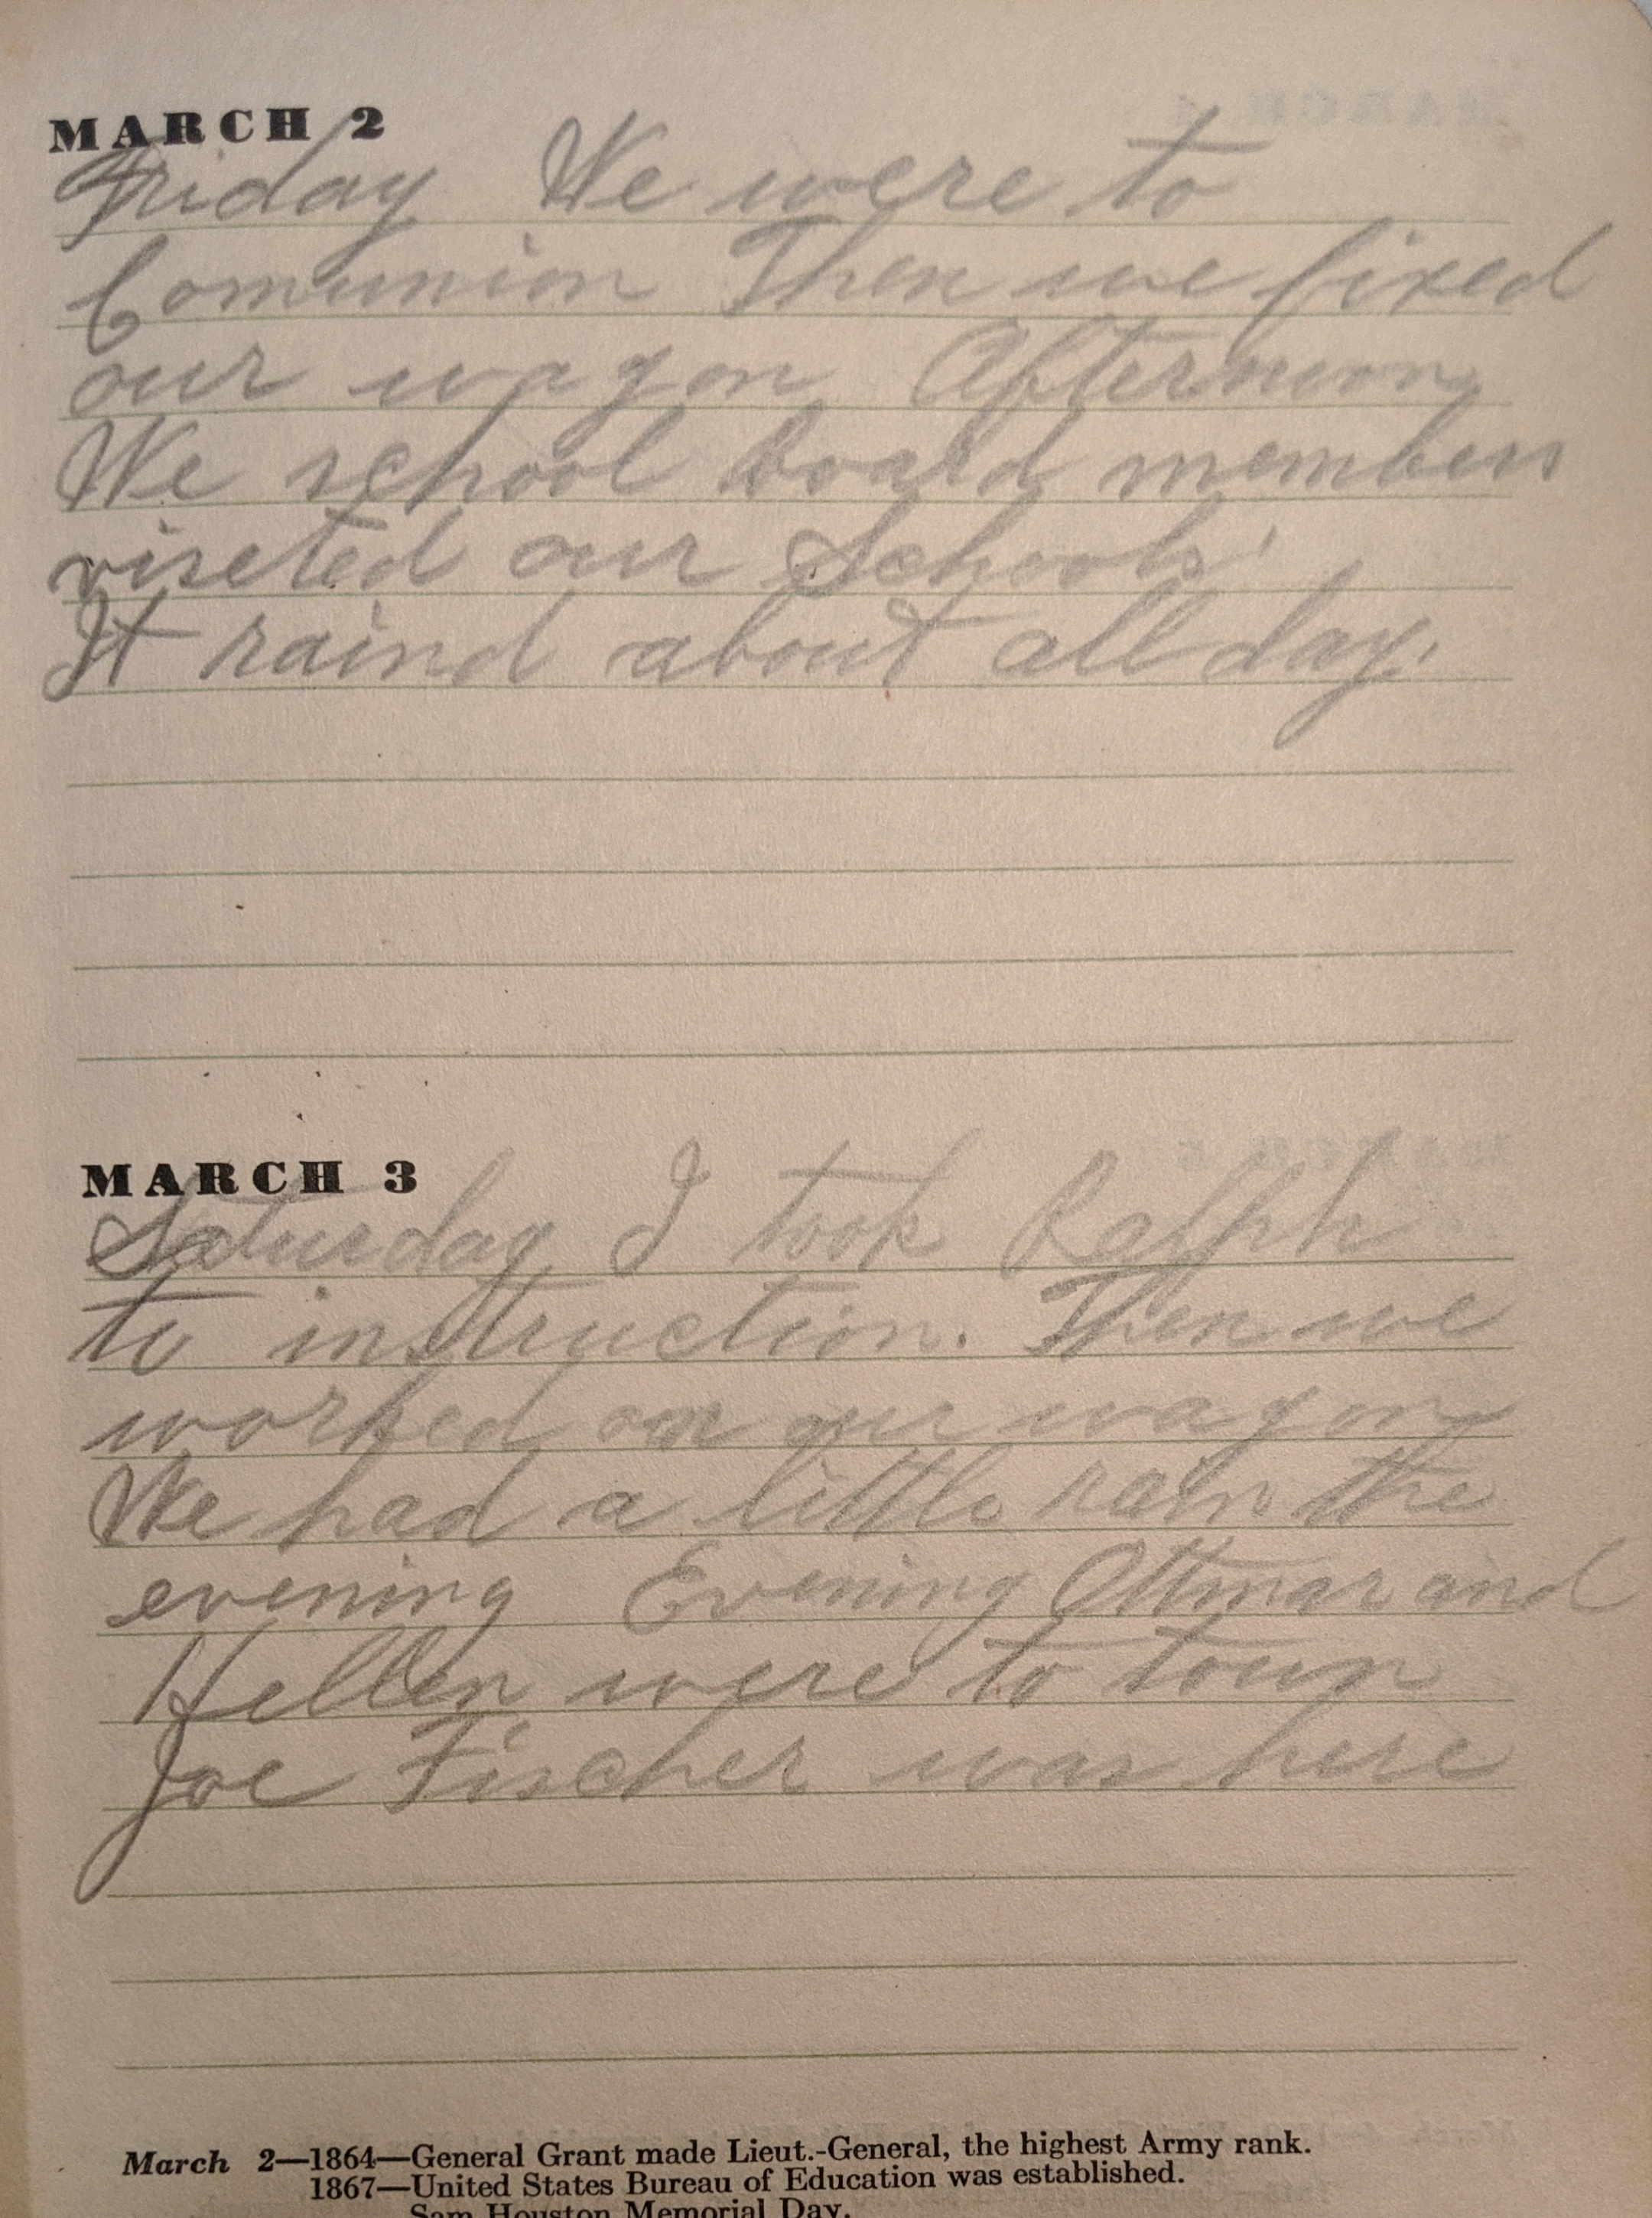 MARCH 2
Friday We were to
Comunion Then we fixed
our wagon Afternoon
We school board members
viseted our Schools'
It raind about all day.
MARCH 3
Saturday I took Ralph
to instruction. Then we
worked on our wagon
We had a little rain the
evening Evening Ottmar and
Hellen were to town
Joe Fischer was here
March 2—1864—General Grant made Lieut.-General, the highest Army rank.
1867—United States Bureau of Education was established.
Sam Houston Memorial Day.